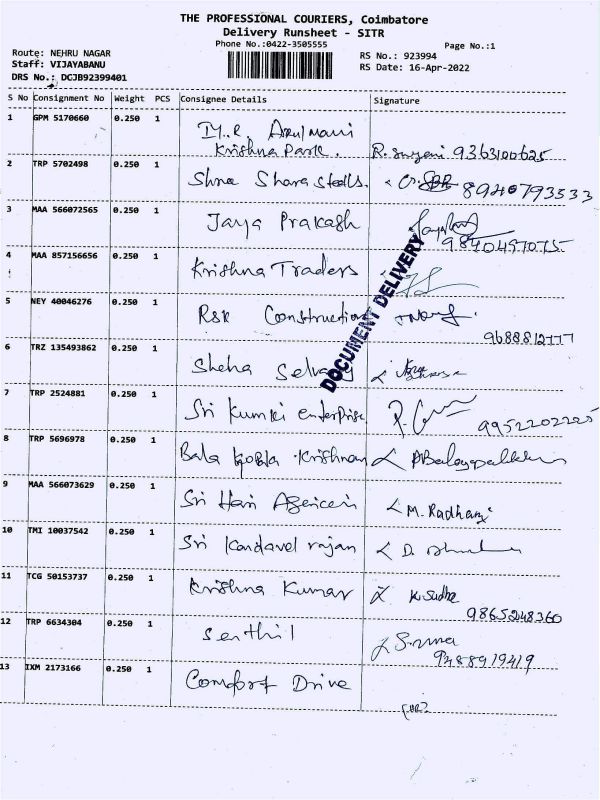 THE PROFESSIONAL COURIERS, Coimbatore
Delivery Runsheet - SITR
Phone No.:0422-3505555
Page No.:1
Route: NEHRU NAGAR
Staff: VIJAYABANU
DRS No.: DCJB92399401
RS No.: 923994
RS Date: 16-Apr-2022
S No Consignment No Weight PCS Consignee Details Signature
1 GPM 5170660 0.250 1 Krishna Park. 9363100625
2 TRP 5702498 0.250 1 Shree Shara Steells. 8940793533
3 MAA 566072565 0.250 1 Jaya Prakash
4 MAA 857156656 0.250 1 Krishna Traders
DOCUMENT DELIVERY
5 NEY 40046276 0.250 1 RSK Construction
6 TRZ 135493862 0.250 1
7 TRP 2524881 0.250 1 Sri Kumki enterprise 9952202205
8 TRP 5696978 0.250 1 Bala Krishnan
9 MAA 566073629 0.250 1 Sri Hari M. Radhamji
10 TMI 10037542 0.250 1 Sri Kandavel rajan
11 TCG 50153737 0.250 1 Krishna Kumar K. Sudha
9865248360
12 TRP 6634304 0.250 1 Senthil
9488919419
13 IXM 2173166 0.250 1 Comfort Drive